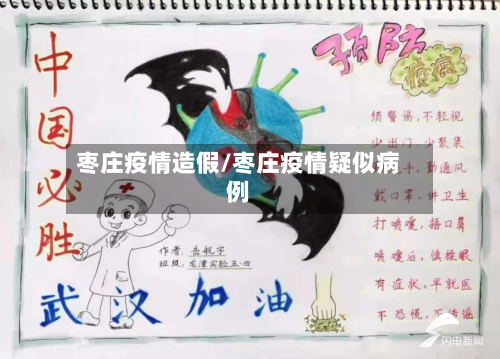 中国必胜
预防
疫病
枣庄疫情造假/枣庄疫情疑似病
例
须警惕，不轻视
少出门，少聚集
手，勤通风
戴口罩，讲卫生
打喷嚏，捂口鼻
喷嚏后，慎揉眼
有症状，早就医
不恐慌，不传谣
作者：岳航宇
班级：龙潭实验五·四
武汉加油
闪电新闻